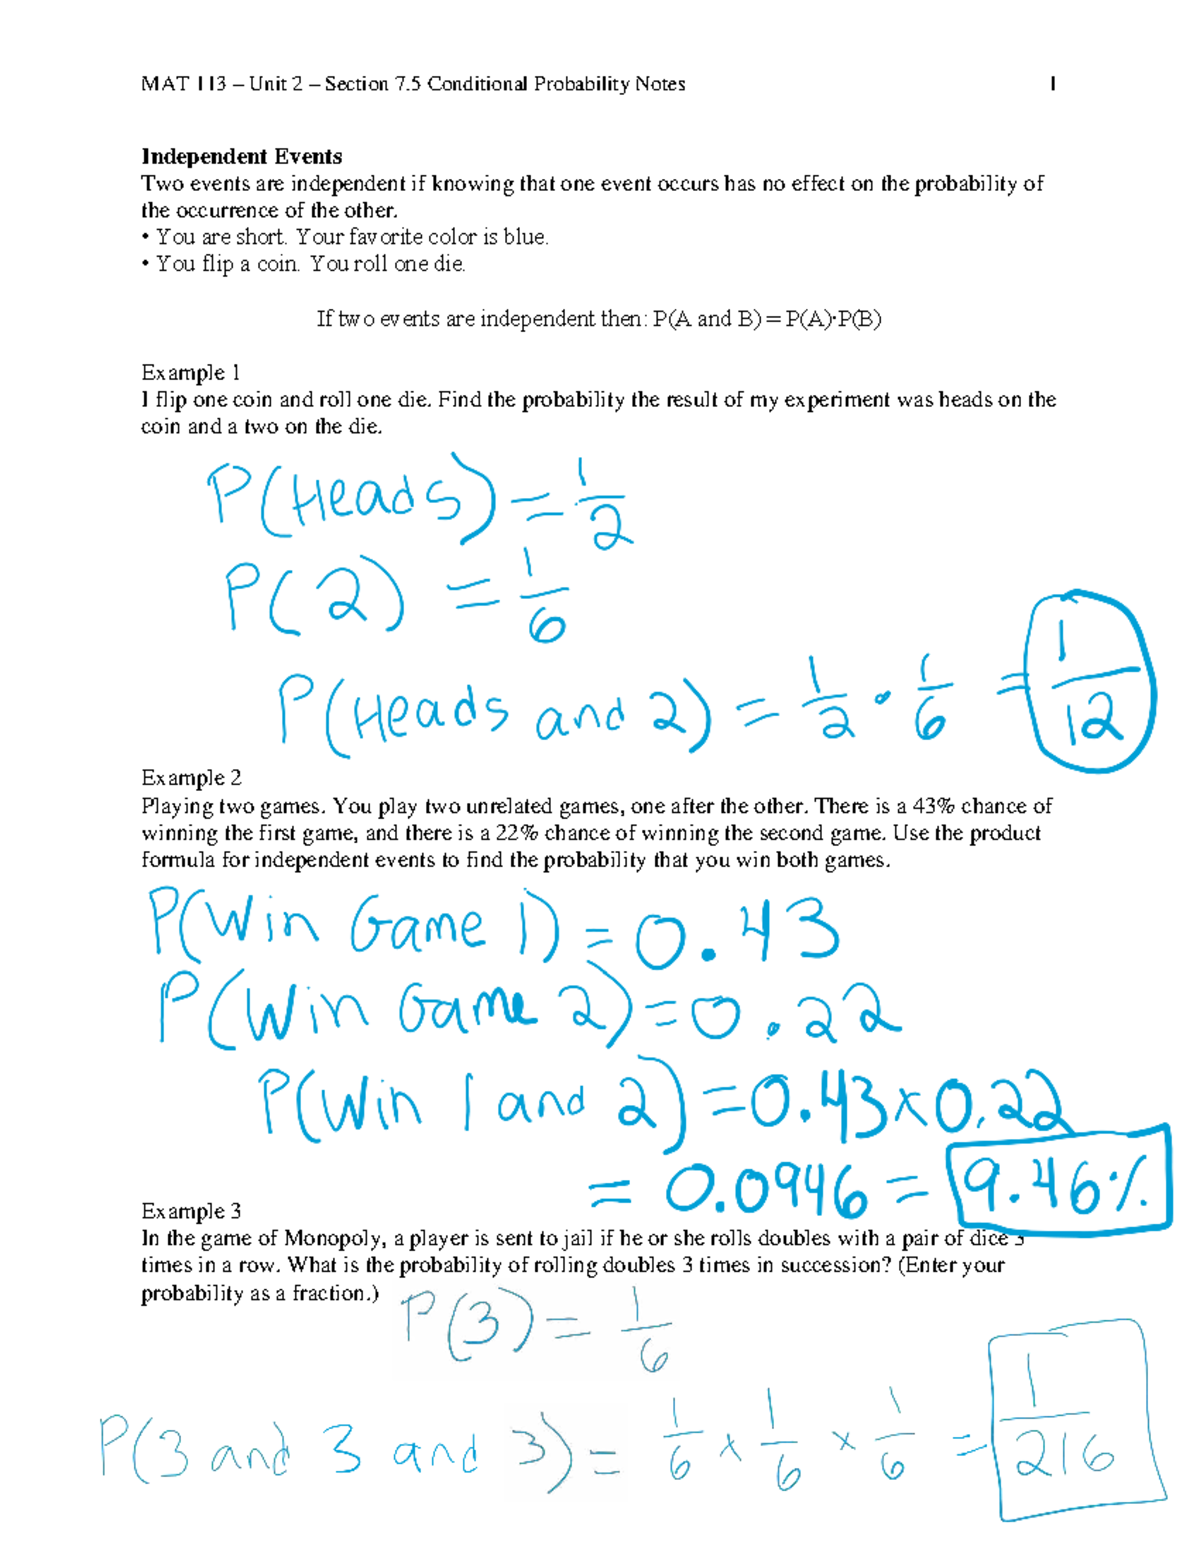 MAT 113 – Unit 2 – Section 7.5 Conditional Probability Notes 1
Independent Events
Two events are independent if knowing that one event occurs has no effect on the probability of
the occurrence of the other.
• You are short. Your favorite color is blue.
• You flip a coin. You roll one die.
If two events are independent then: P(A and B) = P(A)·P(B)
Example 1
I flip one coin and roll one die. Find the probability the result of my experiment was heads on the
coin and a two on the die.
P(Heads) = 1/2
P(2) = 1/6
P(Heads and 2) = 1/2 · 1/6 = 1/12
Example 2
Playing two games. You play two unrelated games, one after the other. There is a 43% chance of
winning the first game, and there is a 22% chance of winning the second game. Use the product
formula for independent events to find the probability that you win both games.
P(Win Game 1) = 0.43
P(Win Game 2) = 0.22
P(Win 1 and 2) = 0.43 x 0.22
= 0.0946 = 9.46%
Example 3
In the game of Monopoly, a player is sent to jail if he or she rolls doubles with a pair of dice 3
times in a row. What is the probability of rolling doubles 3 times in succession? (Enter your
probability as a fraction.)
P(3) = 1/6
P(3 and 3 and 3) = 1/6 x 1/6 x 1/6 = 1/216